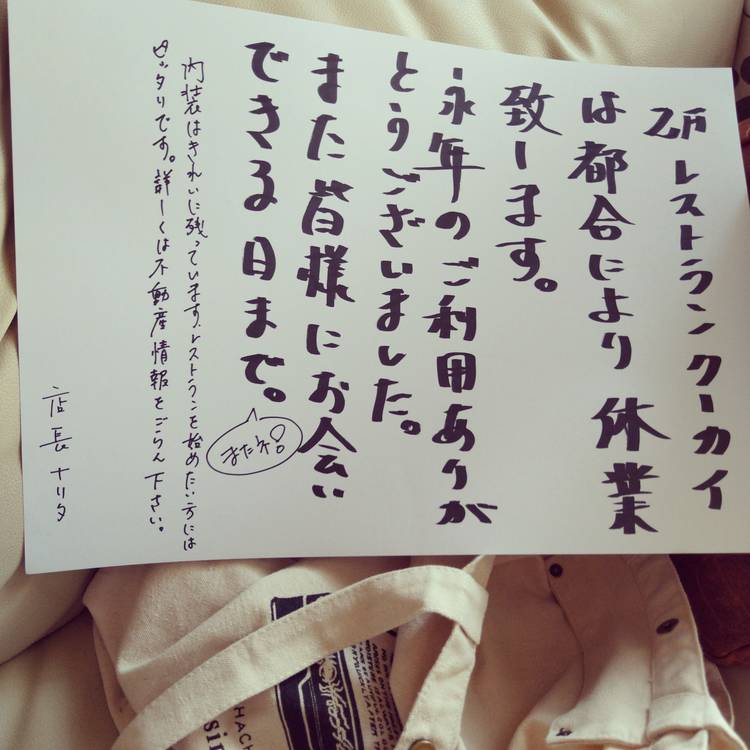 レストラン クーカイ
は都合により 休業
致します。
永年のご利用ありが
とうございました。
また皆様にお会い
できる日まで。
またネ!
内装はきれいに残っています。レストランを始めたい方には
ピッタリです。詳しくは不動産情報をごらん下さい。
店長 ナリタ
HACH
sin